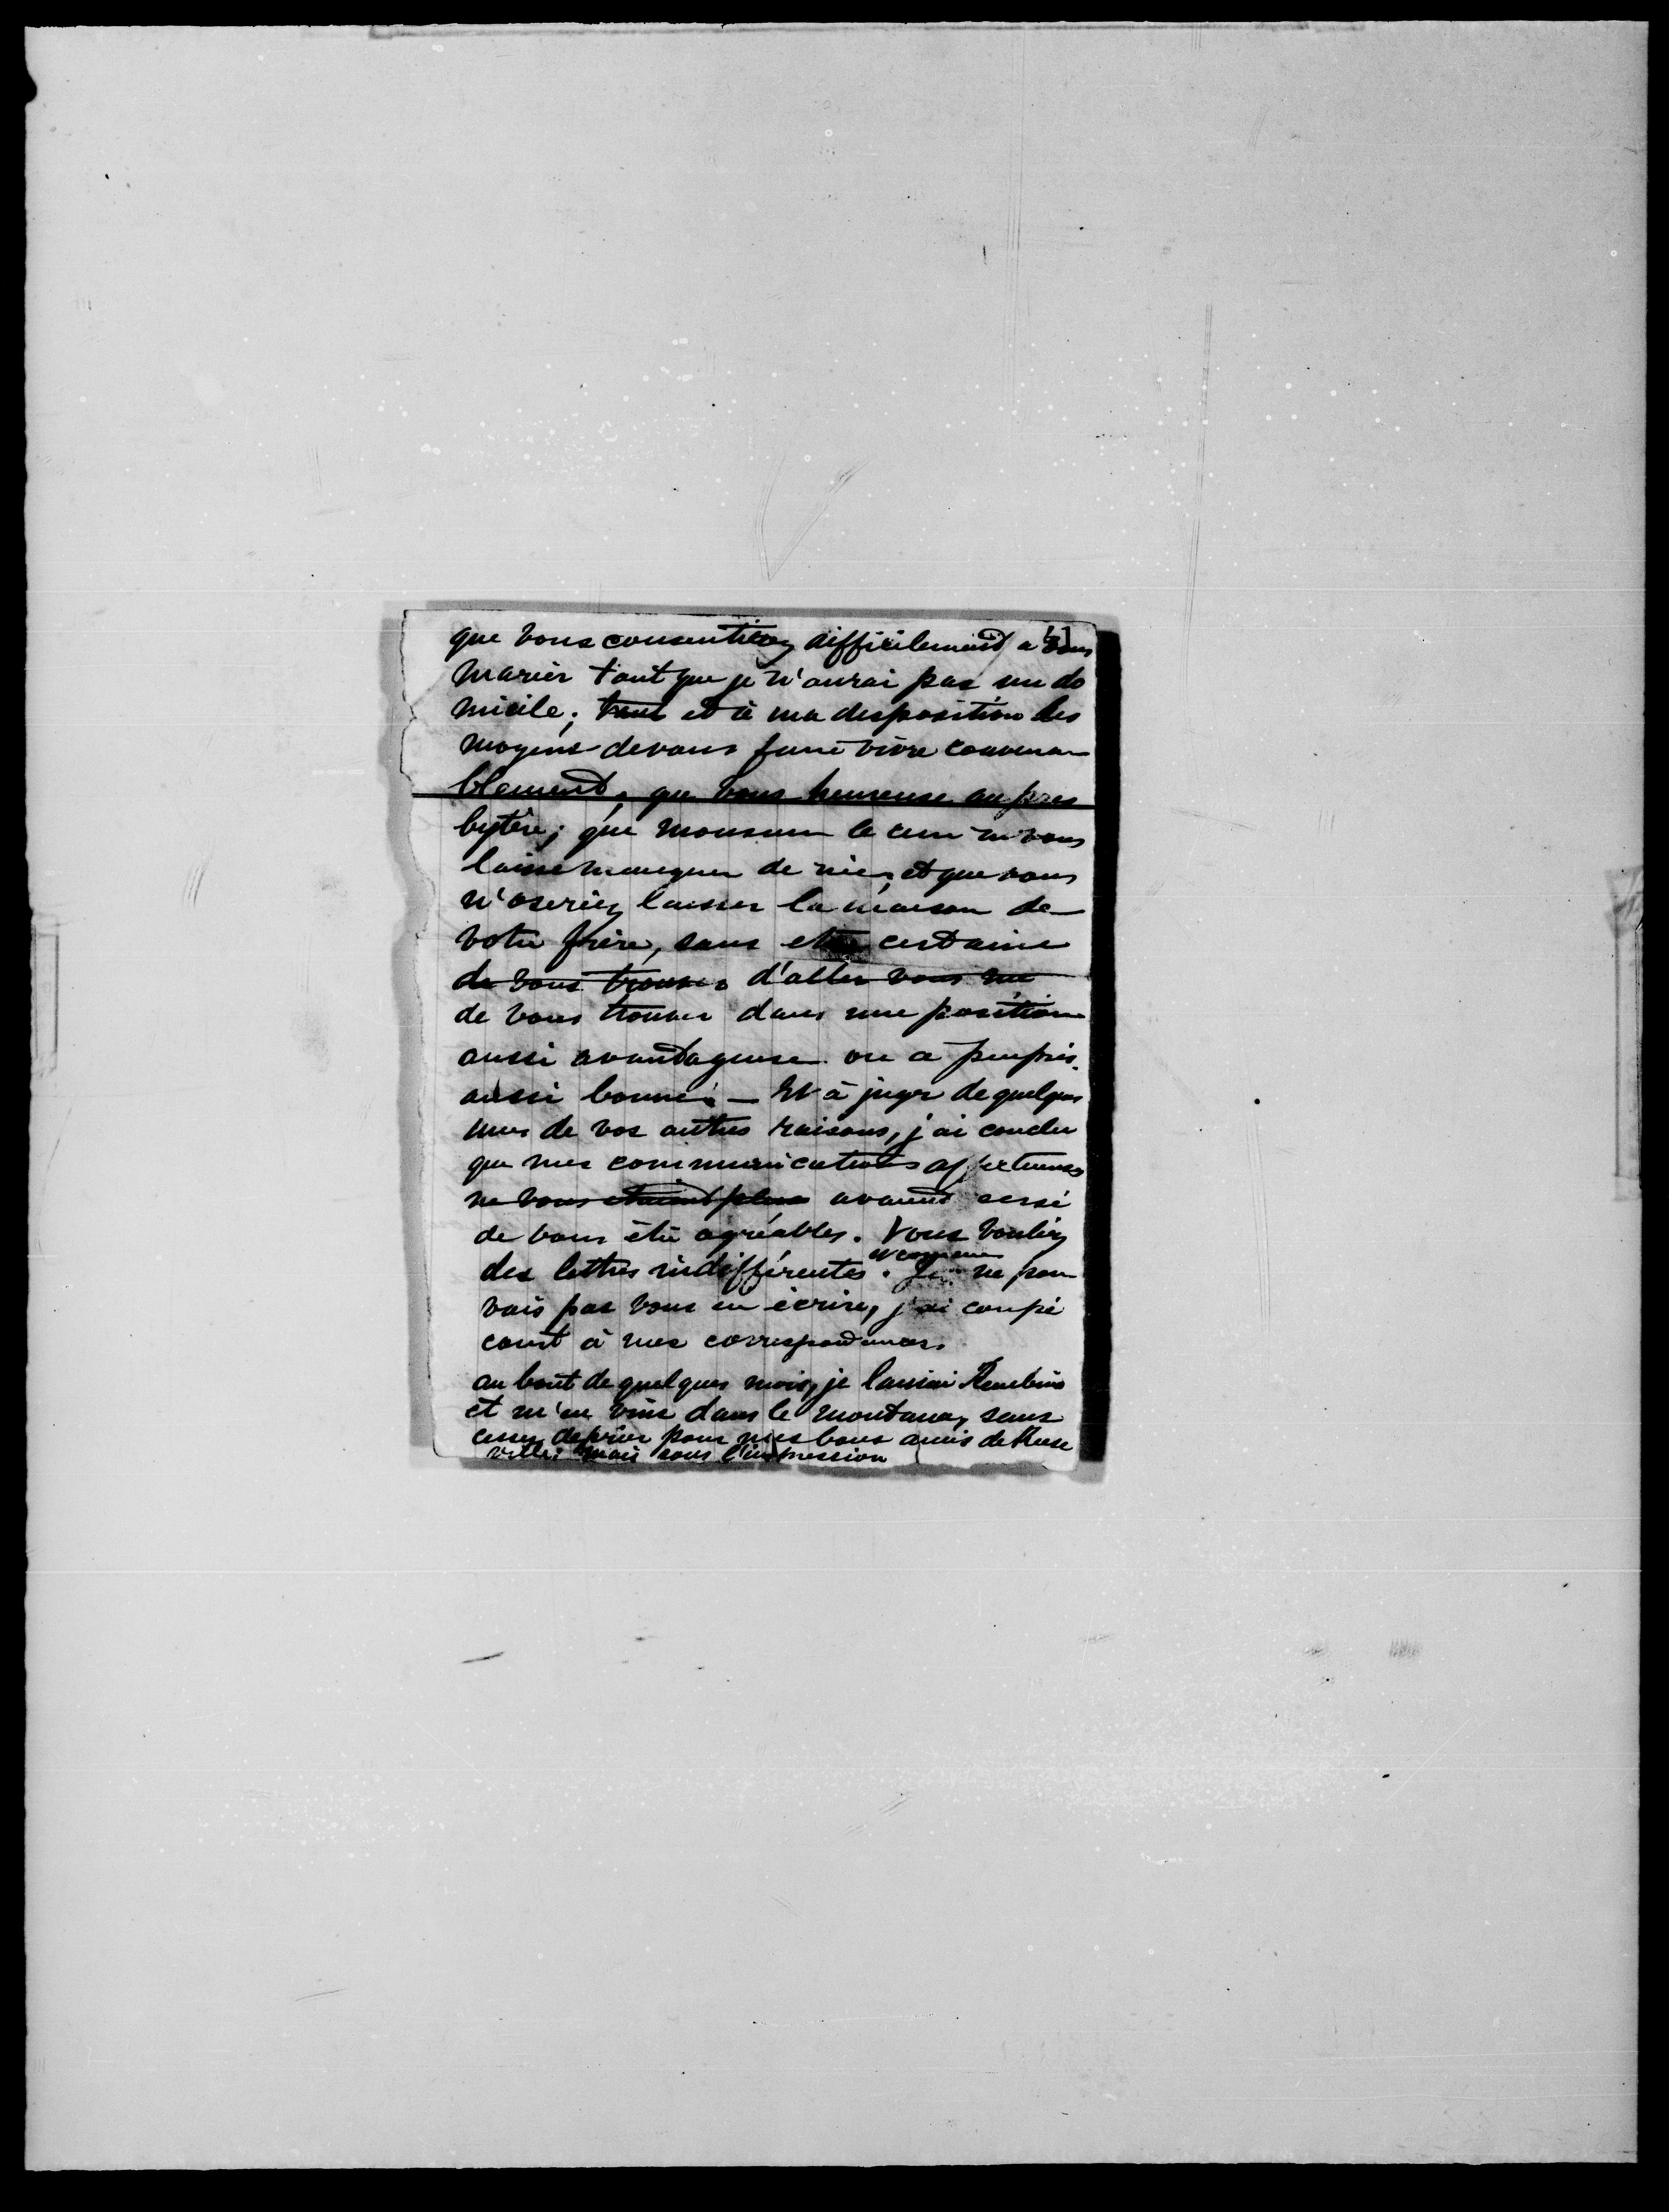 [3]
que vous consentiez difficilement a vous
marier tant que je n'aurai pas un do
micile; tous et à ma disposition les
moyens de vous faire vivre convena
blement, que vous heureuse au pres
bytère; que monsieur le curé ne vous
laisse manquer de rien, et que vous
n'oseriez laisser la maison de
votre frère, sans etre certaine
de vous trouver d'aller vous me
de vous trouver dans une position
aussi avantageuse ou a peuprès
aussi bonne. — Et à juger de quelques
unes de vos autres raisons, j'ai conclu
que mes communications affectueuses
ne vous étaient plus avaient cessé
de vous être agréables. Vous vouliez
des lettres indifférentes. Je ne pou
vais pas vous en écrire, j'ai coupé
court à mes correspondances.
au bout de quelques mois, je laissai Pembina
et m'en vins dans le Montana, sans
cesser de prier pour mes bons amis de Keese
ville: mais sous l'impression